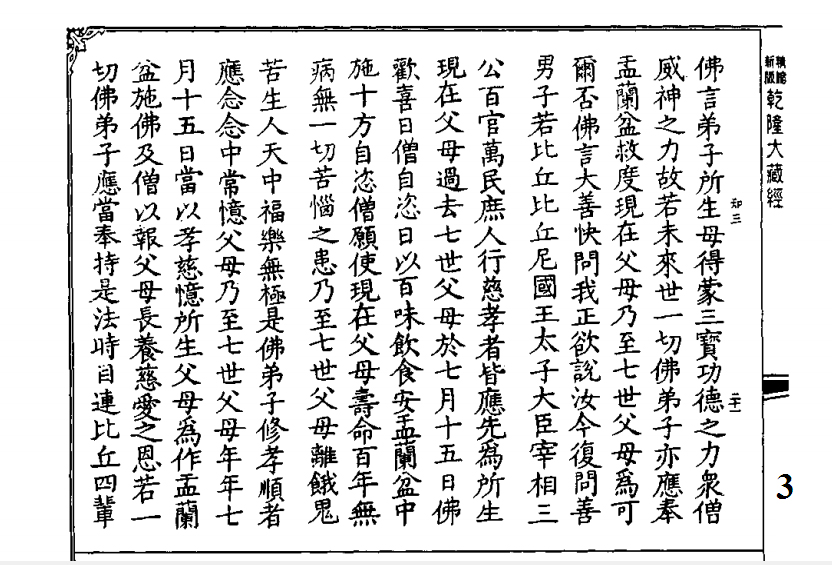 乾隆大藏經
佛言弟子所生母得蒙三寶功德之力衆僧
知三
威神之力故若未來世一切佛弟子亦應奉
盂蘭盆救度現在父母乃至七世父母爲可
爾否佛言大善快問我正欲說汝今復問善
男子若比丘比丘尼國王太子大臣宰相三
公百官萬民庶人行慈孝者皆應先爲所生
現在父母過去七世父母於七月十五日佛
歡喜日僧自恣日以百味飲食安盂蘭盆中
施十方自恣僧願使現在父母壽命百年無
病無一切苦惱之患乃至七世父母離餓鬼
苦生人天中福樂無極是佛弟子修孝順者
應念念中常憶父母乃至七世父母年年七
月十五日當以孝慈憶所生父母爲作盂蘭
盆施佛及僧以報父母長養慈愛之恩若一
切佛弟子應當奉持是法時目連比丘四輩
3